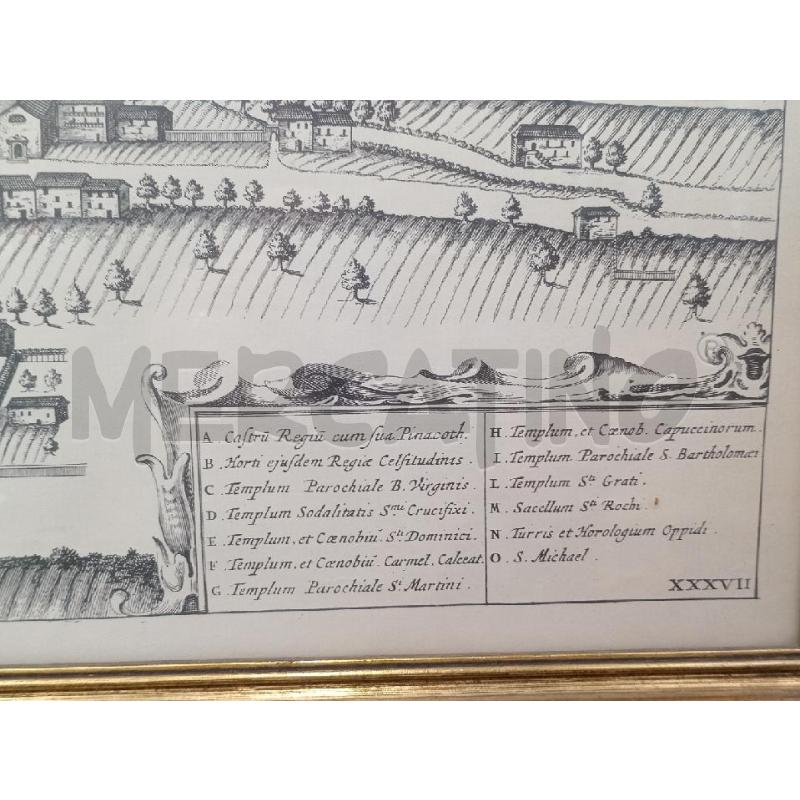 MERCATINO
A. Castrū Regiū cum sua Pinacoth.
B. Horti ejusdem Regiæ Celsitudinis.
C. Templum Parochiale B. Virginis.
D. Templum Sodalitatis Smi Crucifixi.
E. Templum, et Cœnobiū Sti Dominici.
F. Templum, et Cœnobiū Carmel. Calceat.
G. Templum Parochiale St Martini.
H. Templum, et Cœnob. Capuccinorum.
I. Templum Parochiale S. Bartholomæi
L. Templum Sti Grati.
M. Sacellum Sti Rochi.
N. Turris et Horologium Oppidi.
O. S. Michael.
XXXVII